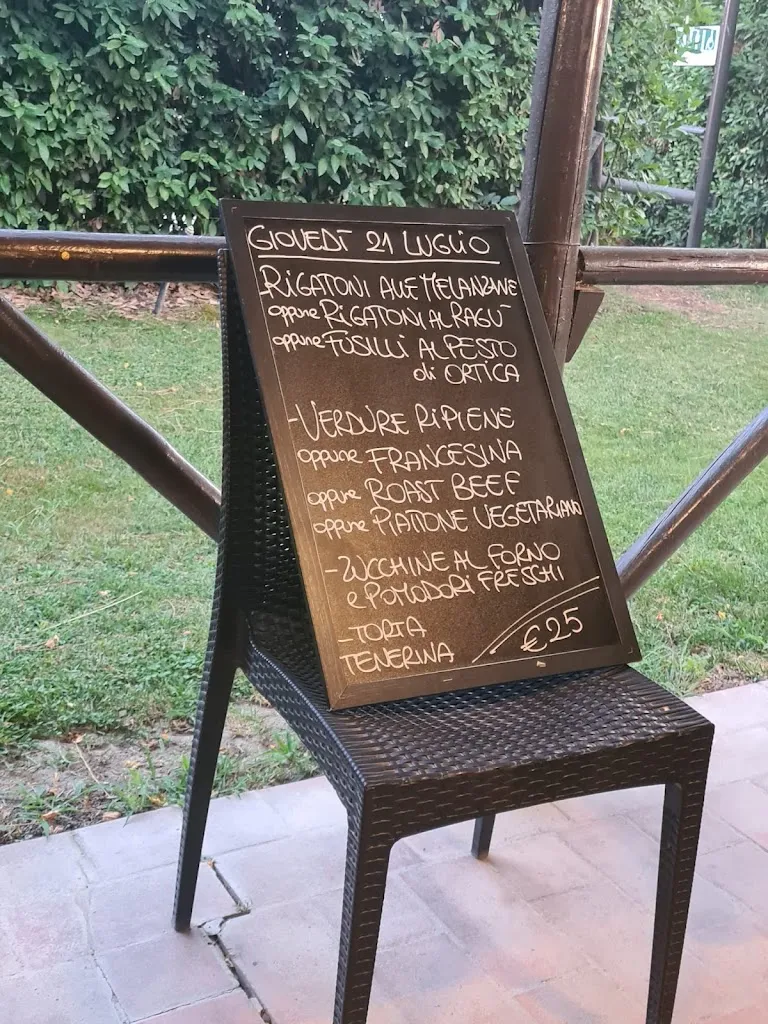 GIOVEDÌ 21 LUGLIO
RIGATONI ALLE MELANZANE
oppure RIGATONI AL RAGÙ
oppure FUSILLI AL PESTO
di ORTICA
-VERDURE RIPIENE
oppure FRANCESINA
oppure ROAST BEEF
oppure PIATTONE VEGETARIANO
-ZUCCHINE AL FORNO
e POMODORI FRESCHI
-TORTA
TENERINA
€25